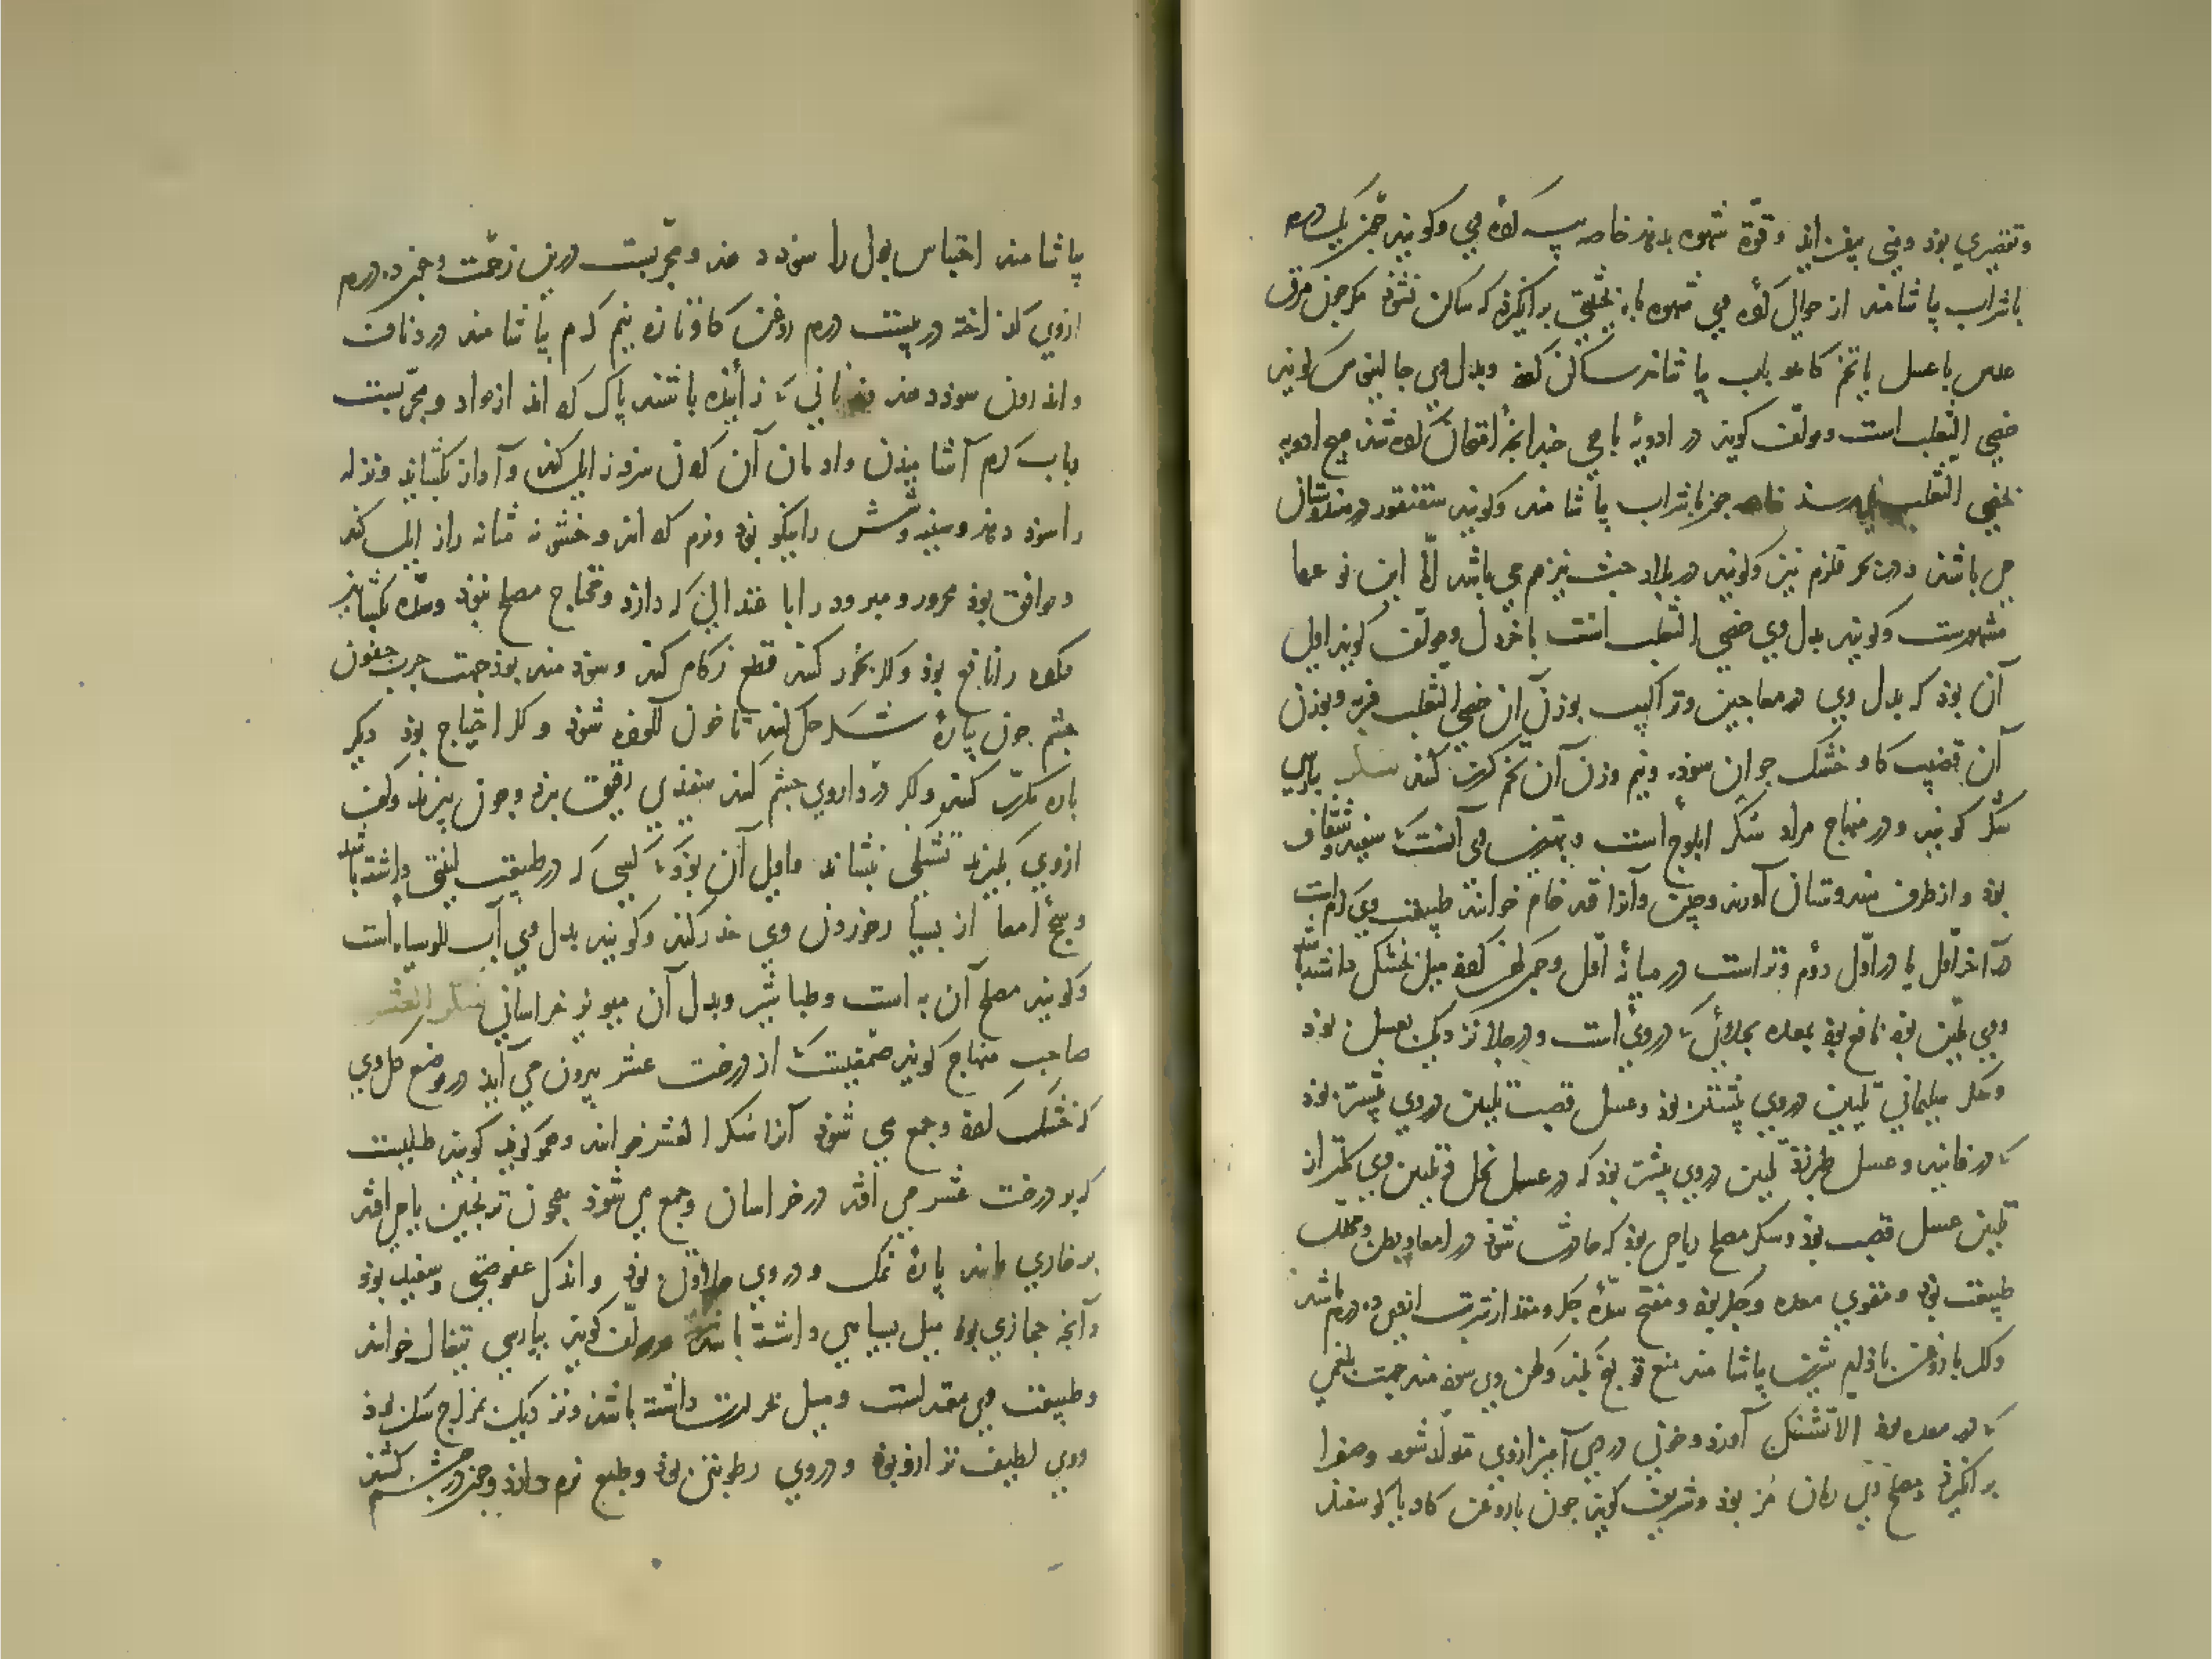 وتقتیری بوذ ومنی بیفزایذ وقوّة شهوه بدهذ خاصه پیه کرده وی وکویند چون یک درم
با شراب بیاشامند از حوالی کرده وی شهوه را برانکیزد که ساکن نشوذ مکر چون مرق
عدس با عسل یا تخم کاهو باب بیاشامند ساکن کرده وبدل وی جالینوس کویند
خصی الثعلب است ومولّف کویذ در ادویهٔ باهی چندانچه امتحان کرده شذ هیچ ادویه
بخصی الثعلب نمی‌رسذ خاصه چون با شراب بیاشامند وکویند سقنقور در هندوستان
می باشذ ودر بحر قلزم نیز وکویند در بلاد حبشه نیز هم می باشد امّا این نوعها
مشهورست وکویند بدل وی خصی الثعلب است با خردل ومولّف کویذ اولی
آن بوذ که بدل وی در معاجین وتراکیب بوزن آن خصی الثعلب فربه وبوزن
آن قضیب کاو خشک جوان سوده ونیم وزن آن تخم کرفت کنند سکر پارسی
شکر کویند ودر منهاج مراد شکر ابلوج است وبهترین وی آنست که سفید وشفاف
بوذ واز طرف هندوستان آورند وچین وآنرا قند خام خوانند طبیعت وی کرمست
در آخر اوّل یا در اوّل دوّم وتر است در میانهٔ اوّل وچون کهن کردد میل بخشکی داشته باشد
وی ملیّن بوذ نافع بوذ بمعده بجلائی که در وی است ودر جلا نزدیک بعسل بوذ
وسکر سلیمانی تلیین در وی بیشتر بوذ وعسل قصب تلیین در وی بیشتر بوذ
که در فانید وعسل طبرزد تلیین در وی بیشتر بوذ که در عسل نحل وتلیین وی کمتر از
تلیین عسل قصب بوذ وسکر مصلح ریاحی بوذ که حادث شوذ در امعا وبطن ومحلل
طبیعت بوذ ومقوی معده وجکر بوذ ومفتح سدّهٔ جکر ومقدار شربت از وی ده درم باشد
وکر با روغن بادام شیرین بیاشامند منع قولنج کند وکهن وی سودمند جهت بلغمی
که در معده بوذ الاّ تشنکی آورد وخونی دردی آمیز از وی متولّد شود وصفرا
برانکیزد ومصلح وی رمان مز بوذ وشریف کویذ چون با روغن کاو یا کوسفند
بیاشامند احتباس بول را سوذ دهد ومجرّبست درین زحمت وچون ده درم
از وی کداخته در بیست درم روغن کاو تازه نیم کرم بیاشامند درد ناف
واندرون سوذ دهد وزنانی که زائیده باشند پاک کرداند از مواد ومجرّبست
وباب کرم آشامیذن وادمان آن کردن سرفه زایل کند وآواز بکشاید ونزله
را سوذ دهد وسینه وشش را نیکو بوذ ونرم کرداند وخشونه مثانه زایل کند
وموافق بوذ محرور ومبرود را با اعتدالی که دارد ومحتاج مصلح نبوذ وسدّه بکشاید
مکرده را نافع بوذ وکر بخور کنند قطع زکام کند وسوذمند بوذ جهت جرب جفون
چشم چون پارهٔ شکر حک کنند تا خون آلوده شوذ وکر احتیاج بوذ دیکر
باره مکرّر کنند وکر در داروی چشم کنند سفیدی رقیق ببرد وچون بپزند وکف
از وی بکیرند تشنکی بنشاند واولی آن بوذ که کسی که در طبیعت لینتی داشته باشد
وسحج امعا از بسیار خوردن وی حذر کند وکویند بدل وی آب آلوسیاه است
وکویند مصلح آن به است وطباشیر وبدل آن میویز خراسانی سکر العشر
صاحب منهاج کویذ صمغیست که از درخت عشر بیرون می آید در موضع کل وی
که خشک کردد وجمع می شوذ آنرا سکر العشر خوانند وهموکویذ کویند طلیست
که بر درخت عشر می افتد در خراسان وجمع می شوذ همچون ترنجبین یا می افتد
بر خاری مانند پارهٔ نمک ودر وی حلاوتی بوذ واندکی عفوصتی وسفید بوذ
وآنچه حجازی بوذ میل بسیاهی داشته باشد مولّف کویذ بپارسی تیغال خوانند
وطبیعت وی معتدلست ومیل بحرارت داشته باشد ونزدیک بمزاج سکر بوذ
ووی لطیف تر از او بوذ ودر وی رطوبتی بوذ وطبع نرم دارد وچون در چشم کشند